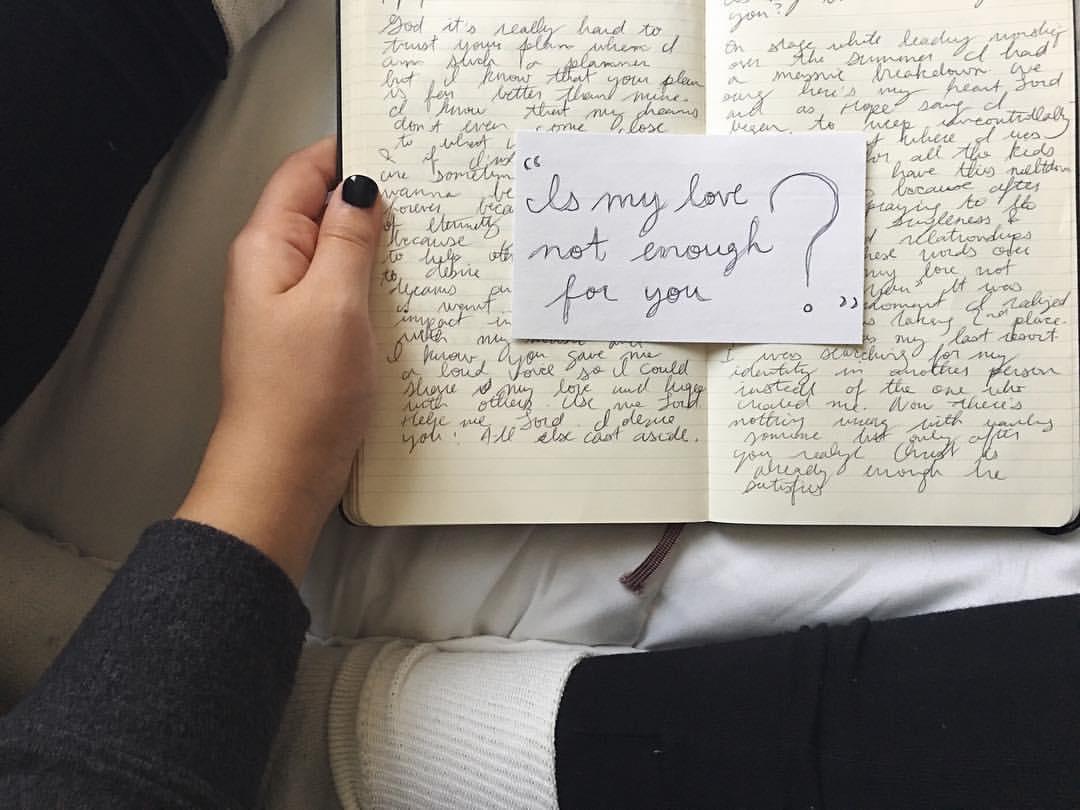 God it's really hard to
trust your plan when I
am such a planner
but I know that your plan
is far better than mine.
I know that my dreams
don't even come close
to what
& if
are sometim
wanna be
forever beca
of eternity
because
to help oth
to desire
dreams an
I want
impact in
with my
I know You gave me
a loud voice so I could
share my love and
with others. Use me Lord.
Help me Lord. I desire
you! All else cast aside.
“Is my love
not enough
for you ?”
you?
On stage while leading worship
over the summer I had
a massive breakdown. We
sung here's my heart Lord
and as Hope sang I
began to weep uncontrollably
where I was
for all the kids
have this meltdown
because after
praying to the
singleness &
relationships
these words over
my love not
you" It was
moment I realized
taking place.
not
as my last resort.
I was searching for my
identity in another person
instead of the one who
created me. Now there's
nothing wrong with wanting
someone but only after
you realize Christ is
already enough